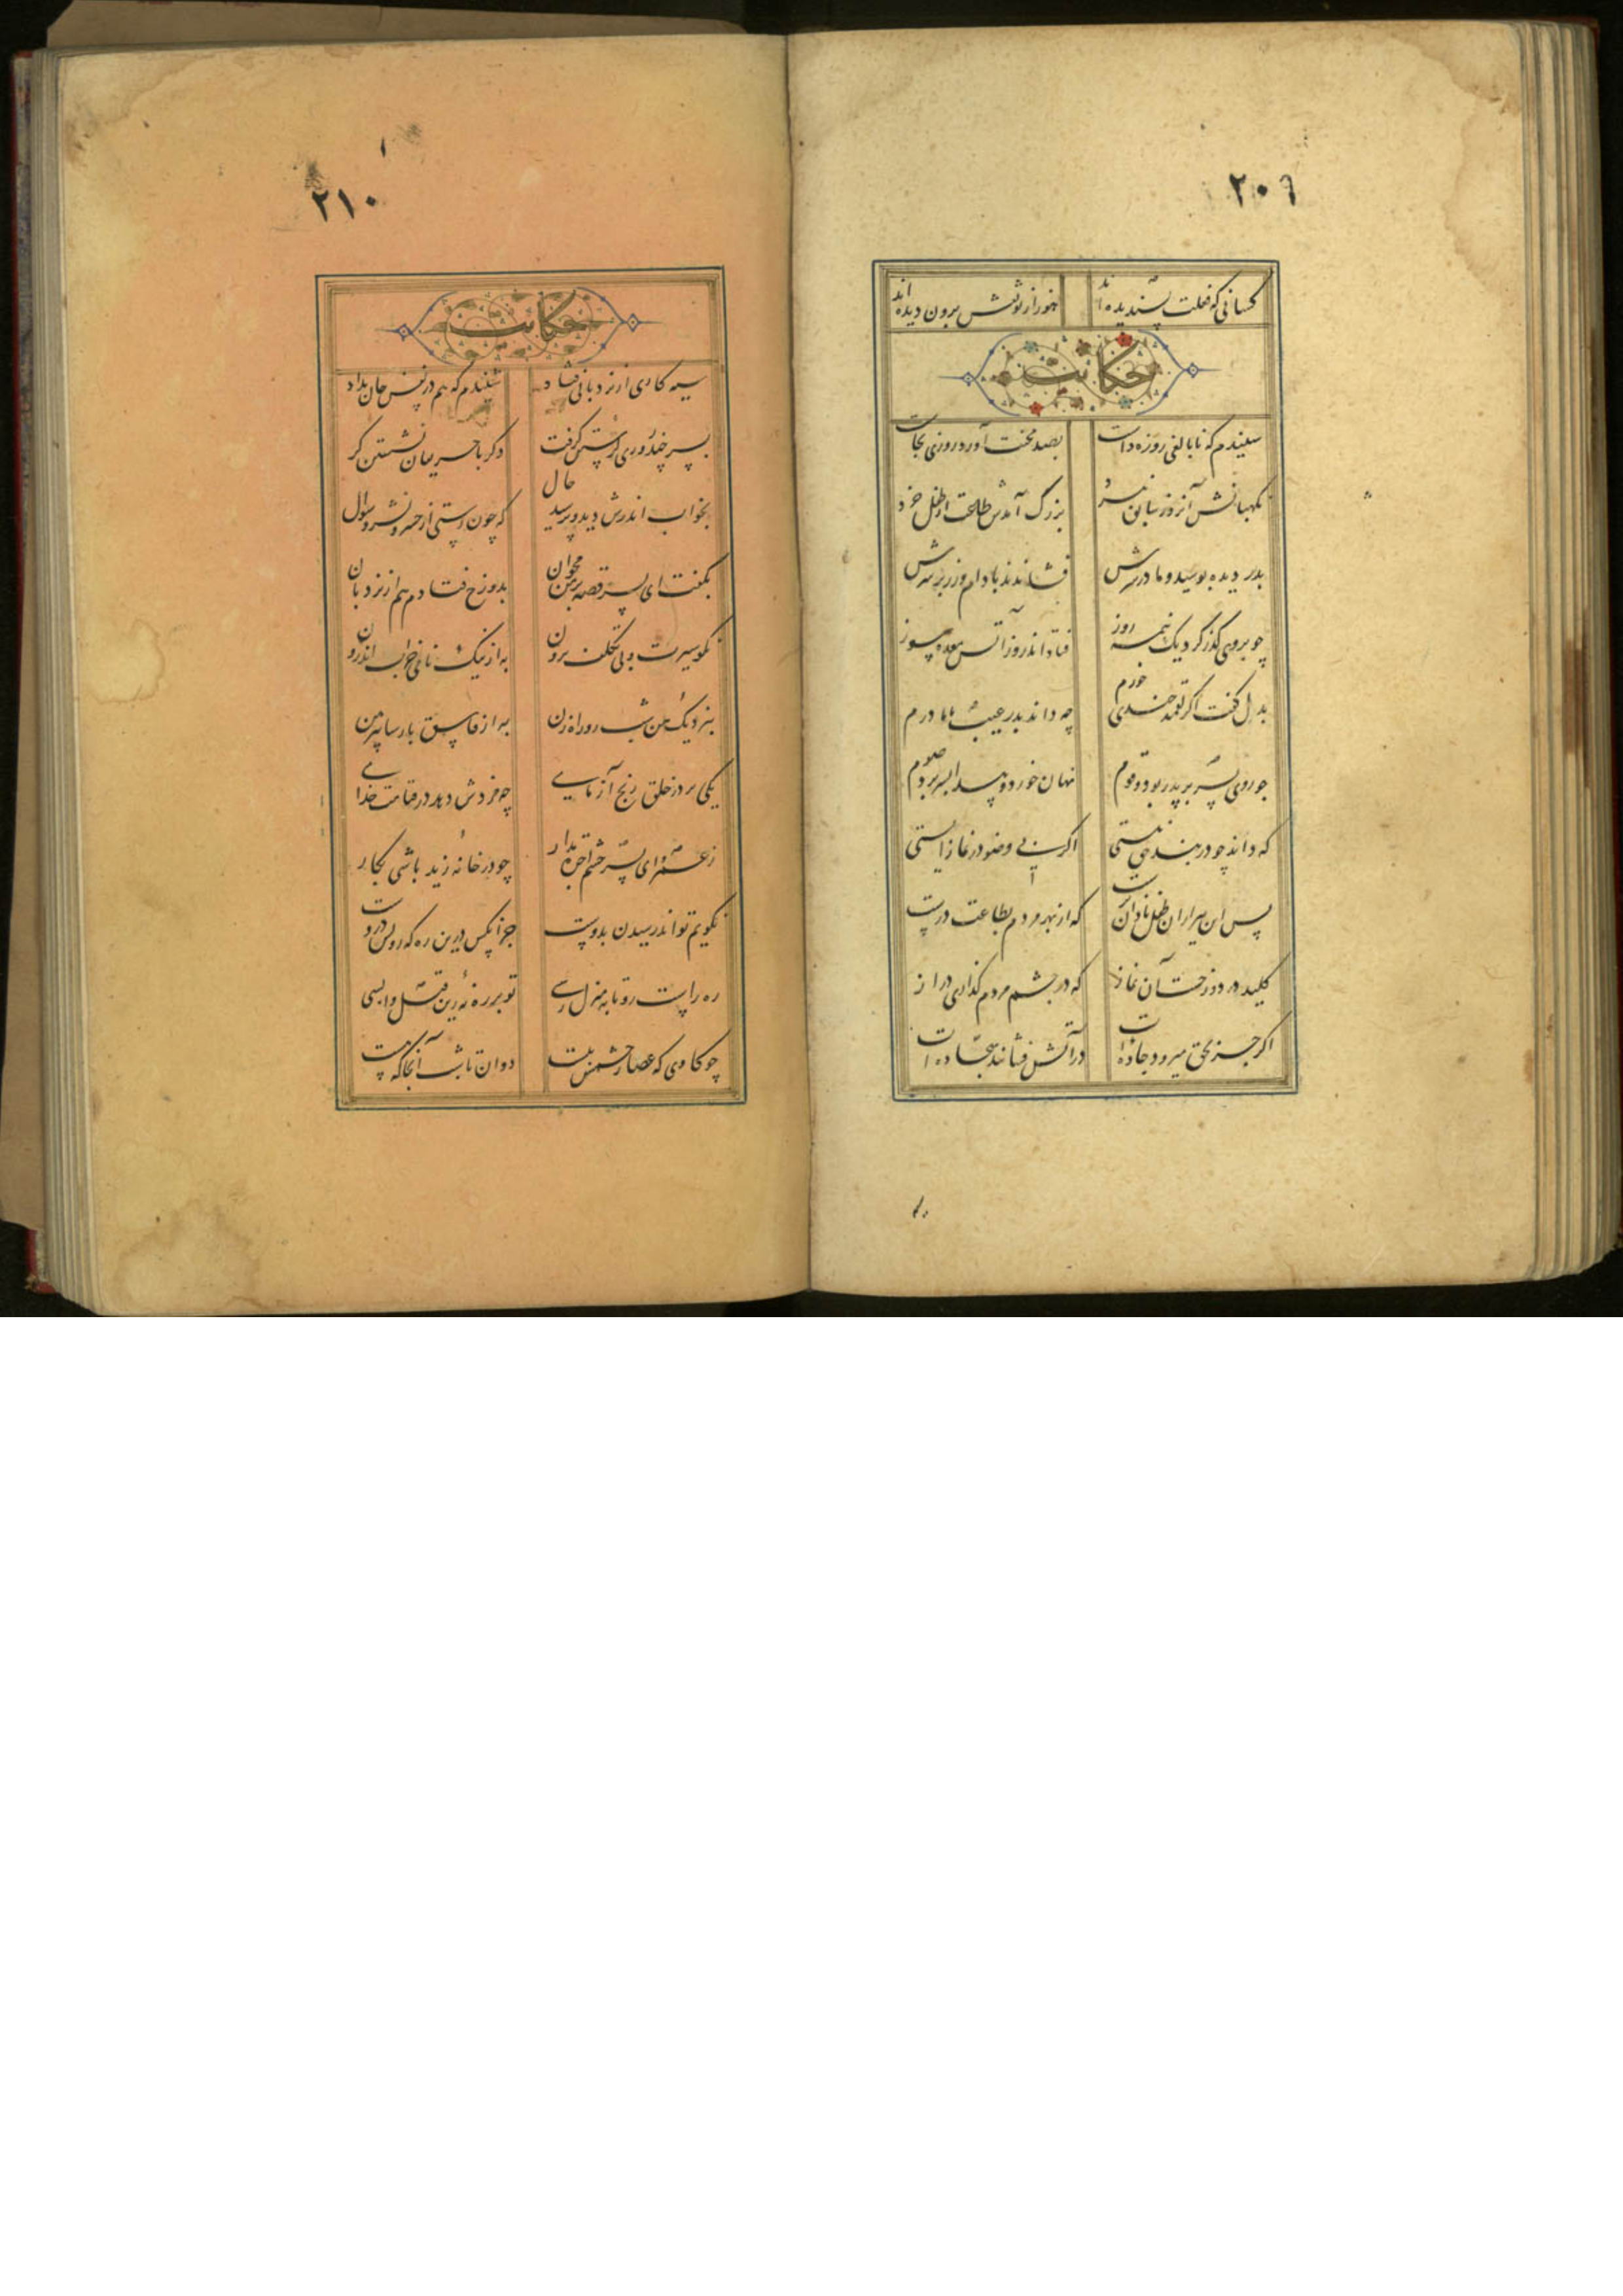 ۲۰۹
کسانی که فعلت پسندیده‌اند هنوز از تو نقش برون دیده‌اند
حکایت
شنیدم که نابالغی روزه داشت بصد محنت آورد روزی بچاشت
بزرگ آمدش طاعت از طفل خرد
پدر دیده بوسید و مادر سرش فشاندند بادام و زر بر سرش
چو بروی گذر کرد یک نیمه روز فتاد اندرو ز آتش معده سوز
بدل گفت اگر لقمه چندی خورم چه داند پدر غیب یا مادرم
چو روی پسر بر پدر بود و قوم نهان خورد و پیدا بسر برد صوم
که داند چو در بند حق نیستی اگر بی وضو در نماز ایستی
پس این پیر از آن طفل نادان‌ترست که از بهر مردم بطاعت درست
کلید در دوزخست آن نماز که در چشم مردم گذاری دراز
اگر جز بحق میرود جاده‌ات در آتش فشانند سجاده‌ات
۲۱۰
حکایت
سیه کاری از نردبانی فتاد شنیدم که هم در نفس جان بداد
پسر چند روزی گرستن گرفت دگر با حریفان نشستن گرفت
بخواب اندرش دید و پرسید حال که چون رستی از حشر و نشر و سوال
بگفت ای پسر قصه بر من مخوان بدوزخ فتادم هم از نردبان
نکو سیرت و بی تکلف برون به از نیک نامی خراب اندرون
بنزدیک من شب رو راه زن به از فاسق پارسا پیرهن
یکی بر در خلق رنج آزمای چه مزدش دهد در قیامت خدای
ز عمرو ای پسر چشم اجرت مدار چو در خانه زید باشی بکار
نگویم تواند رسیدن بدوست جز آنکس درین ره که رویش دروست
ره راست رو تا به منزل رسی تو بر ره نه‌ای زین قبل واپسی
چو گاوی که عصار چشمش ببست دوان تا بشب آنجا که هست